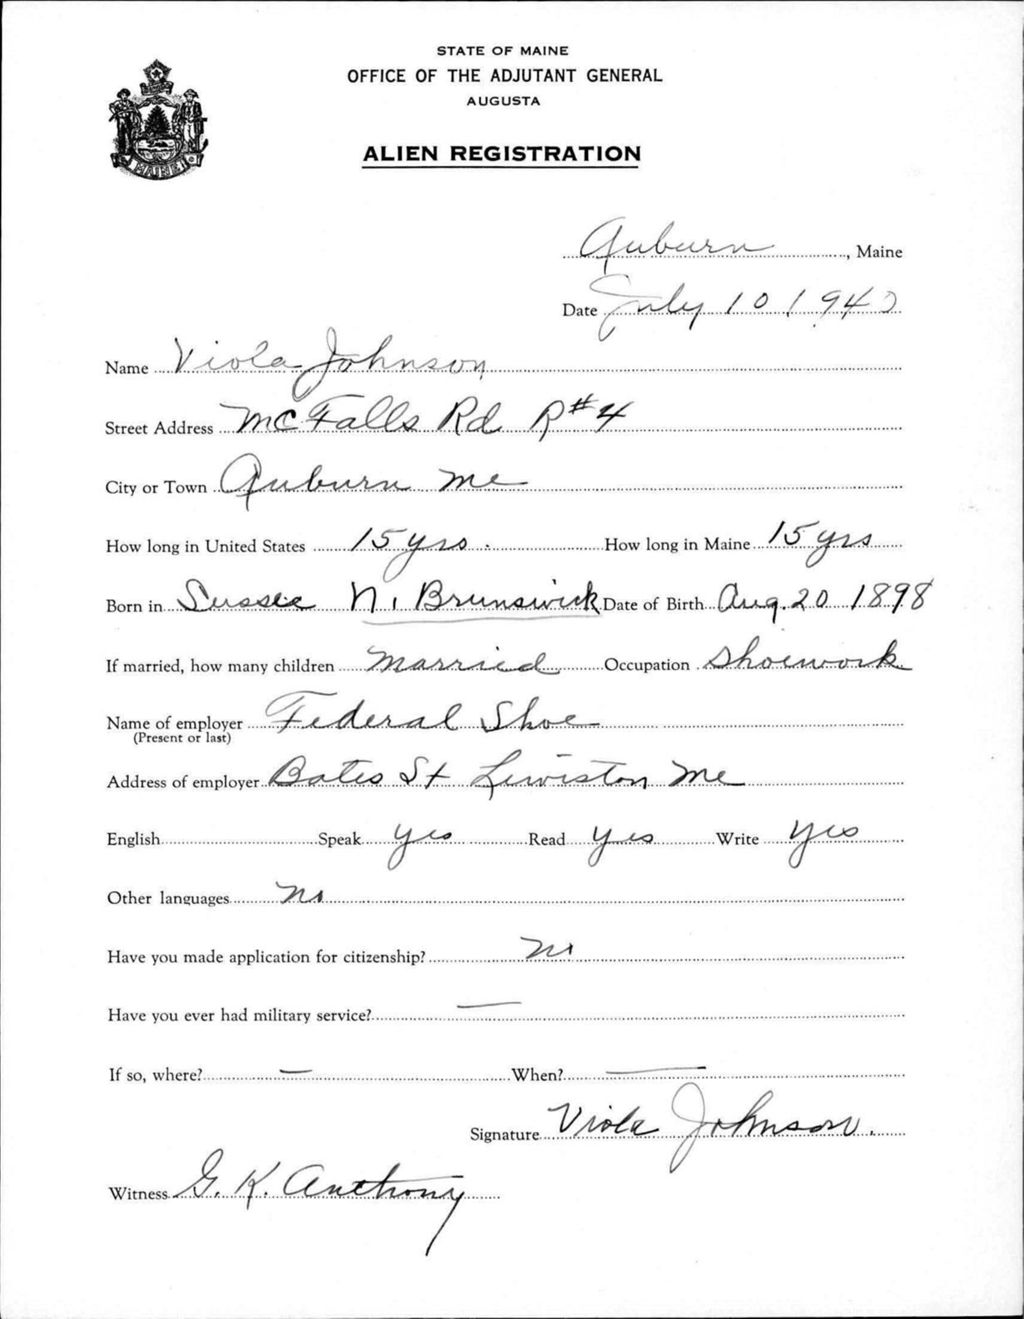 STATE OF MAINE
OFFICE OF THE ADJUTANT GENERAL
AUGUSTA
ALIEN REGISTRATION
MAINE
Auburn, Maine
Date July 10 1940
Name Viola Johnson
Street Address McFalls Rd R#4
City or Town Auburn Me
How long in United States 15 yrs. How long in Maine 15 yrs
Born in N. Brunswick Date of Birth Aug. 20 1898
If married, how many children Married Occupation Shoework
Name of employer Federal Shoe
(Present or last)
Address of employer Bates St Lewiston, Me
English Speak yes Read yes Write yes
Other languages no
Have you made application for citizenship? no
Have you ever had military service? —
If so, where? — When? —
Signature Viola Johnson.
Witness G. K. Anthony